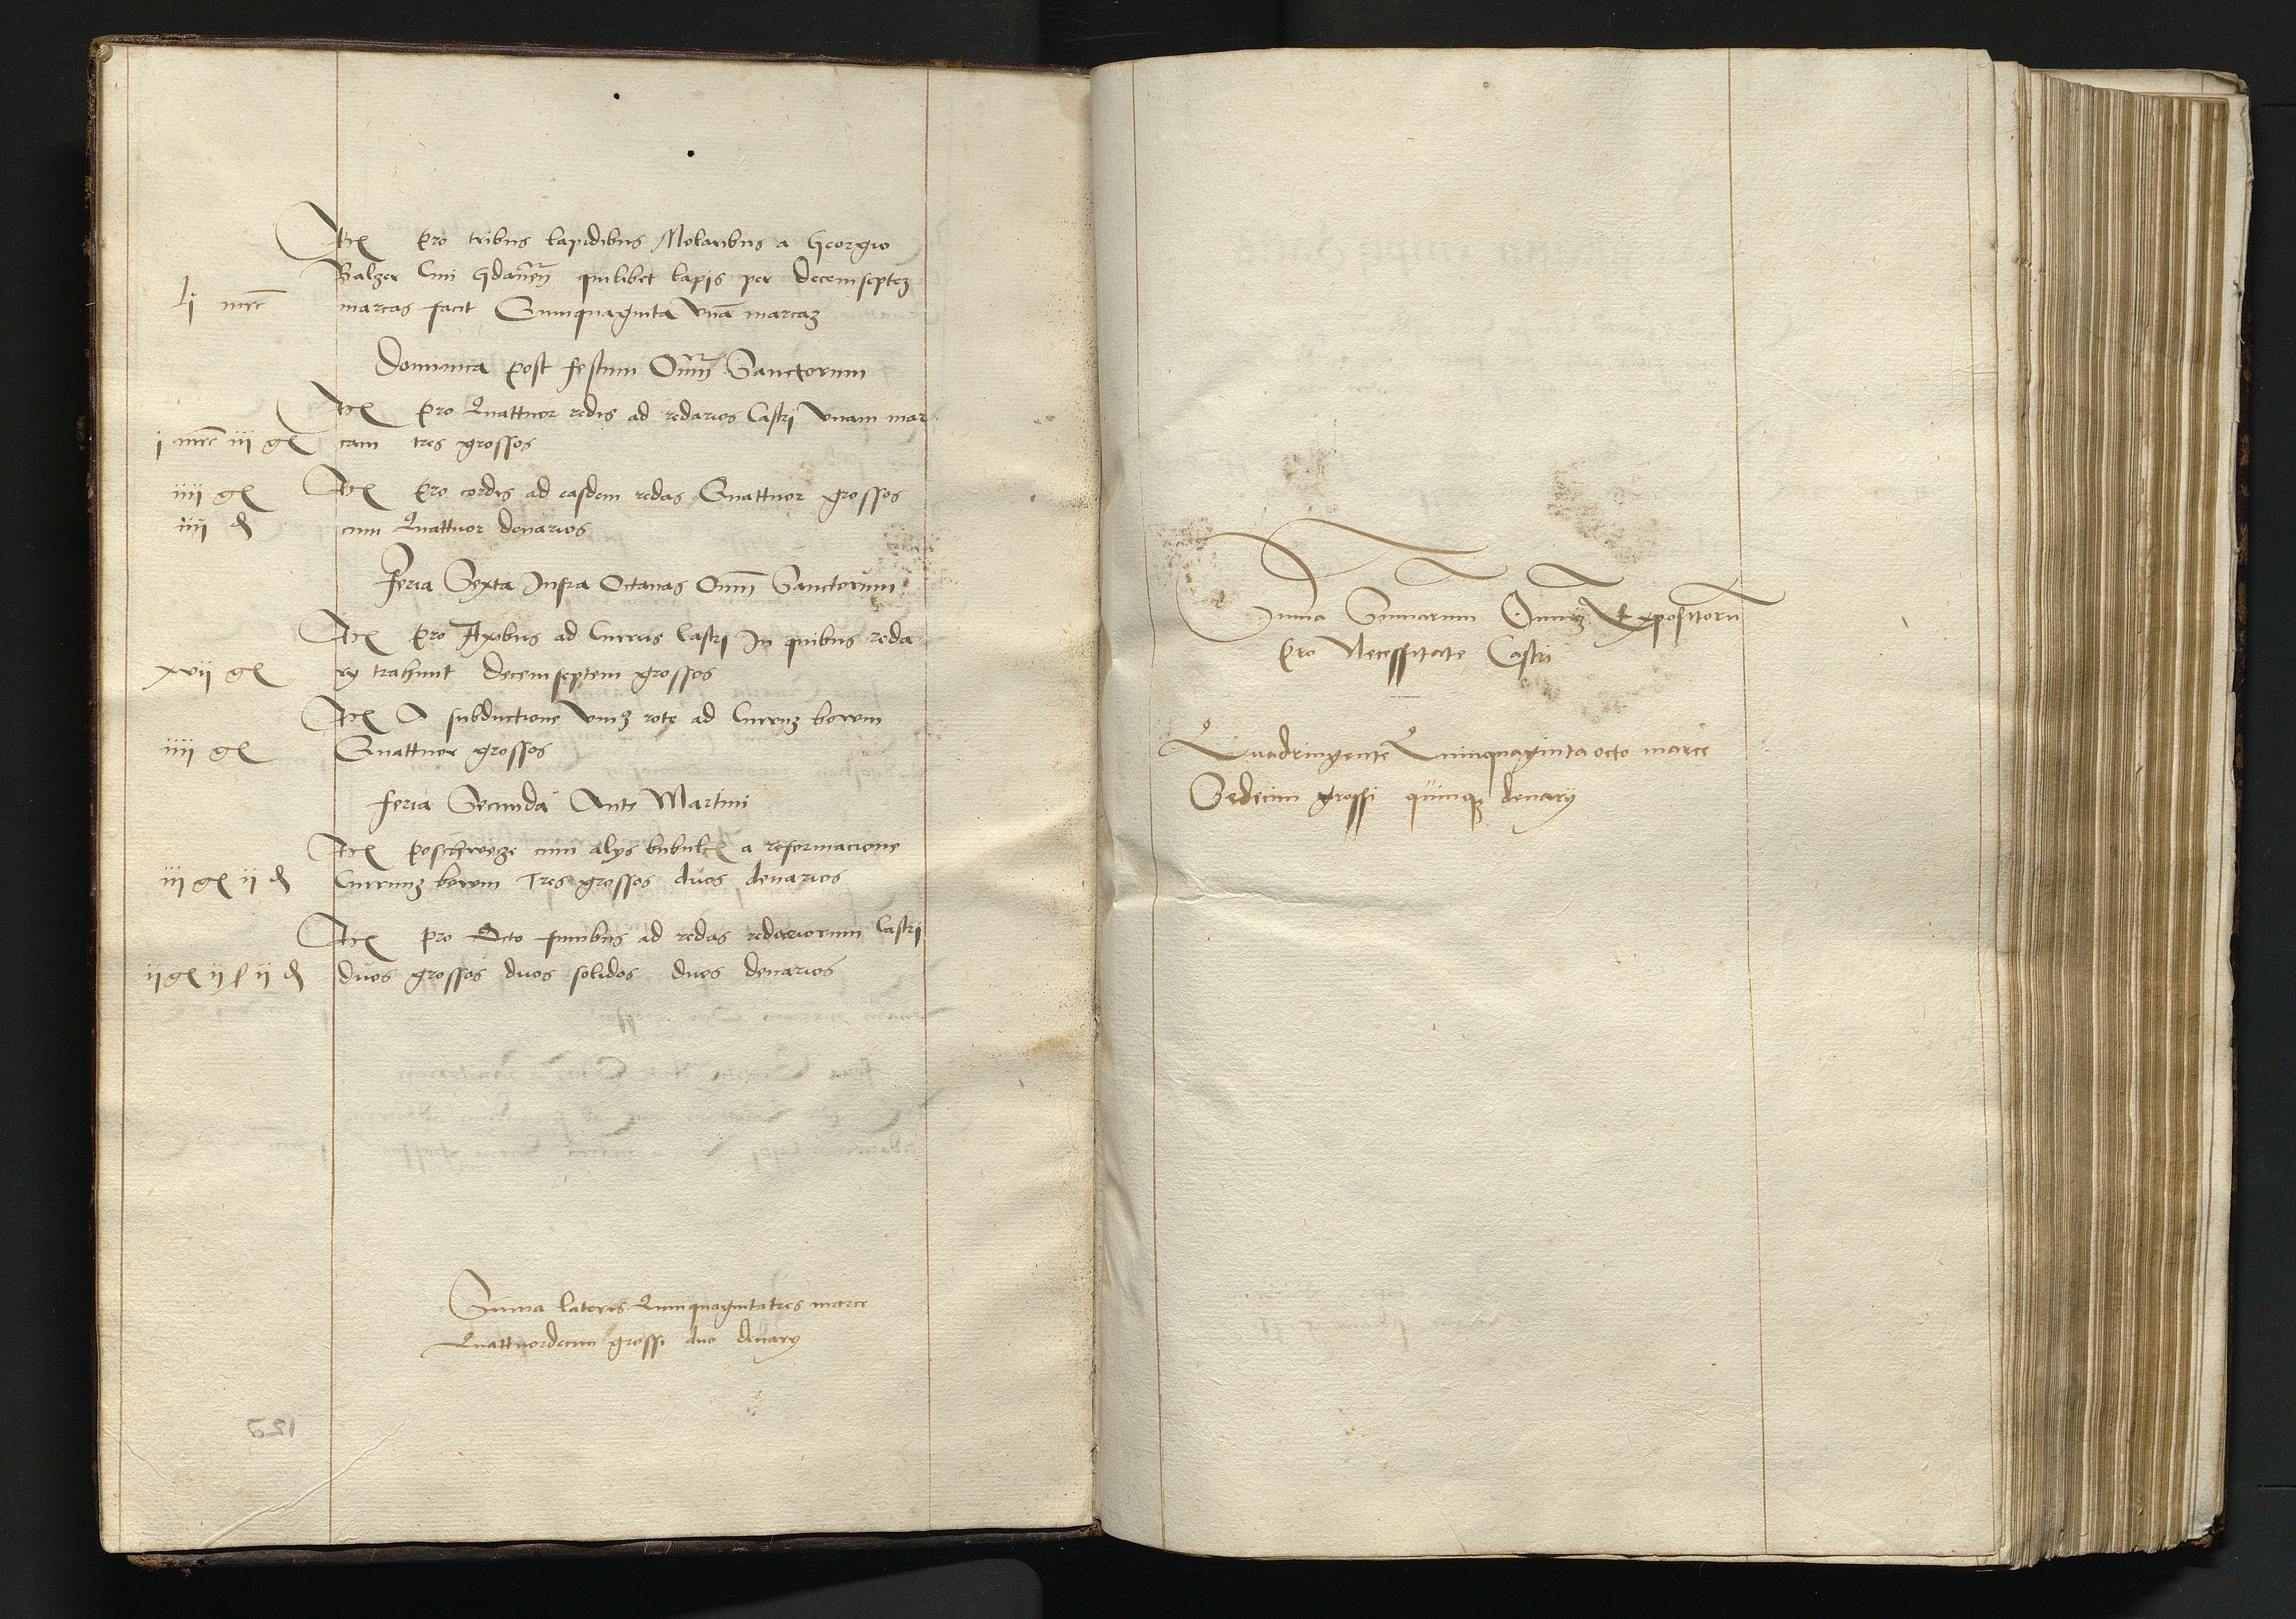 Itē pro tribus lapidibus Molaribus a Georgio
Balzer Civi Gdanēn quilibet lapis per decemseptē
lj mrc marcas facit Quinquaginta Vnā marcaʒ
Dominica post festum Omniū Sanctorum
Itē pro Quattuor redis ad redarios Castri Vnam mar
j mrc iij gʳ cam tres grossos
iiij gʳ Itē pro cordis ad easdem redas Quattuor grossos
iiij d cum Quattuor denarios
Feria Sexta Infra Octauas Omniū Sanctorum
Itē pro Axibus ad Currus Castri In quibus reda
xvij gʳ rij trahunt decemseptem grossos
Itē A subductione Vniʒ rote ad Curruʒ bovum
iiij gʳ Quattuor grossos
Feria Secunda Ante Martini
Itē poschwoze cum alijs bubulcʒ a reformacione
iij gʳ ij d Curruuʒ bovum Tres grossos duos denarios
Itē pro Octo funibus ad redas redariorum Castri
ij gʳ ij ſ ij d duos grossos duos solidos duos denarios
Sūma lateris Quinquagintatres marce
Quattuordecim grossi duo denarij
127
Sūma Sūmarum Omniuʒ Expositorū
pro Necessitate Castri
Quadringente Quinquaginta octo marce
Sedecim grossi quinqʒ denarij